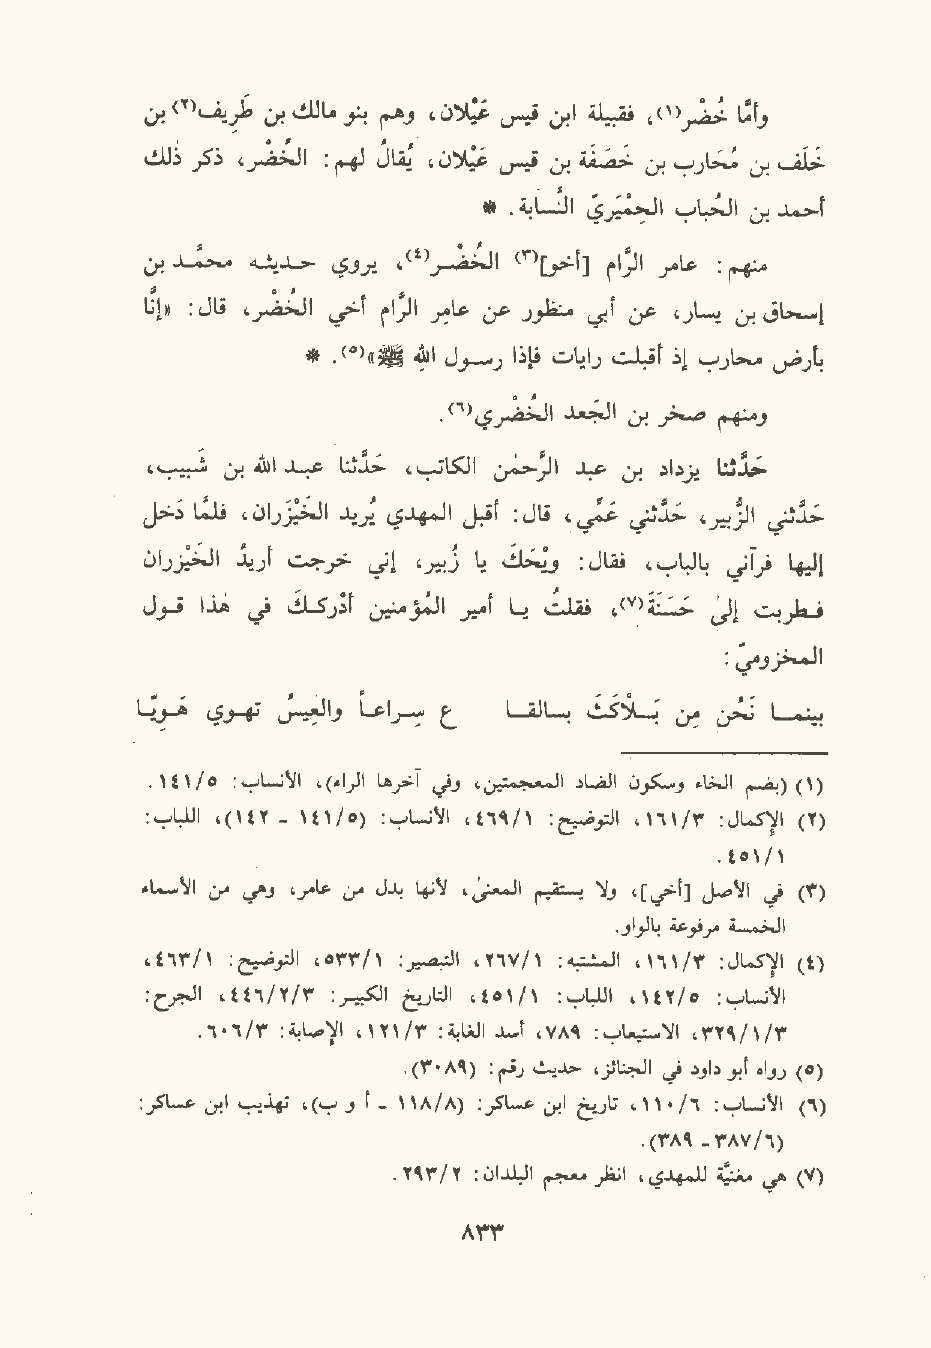 وأمَّا خُضْر(١)، فقبيلة ابن قيس عَيْلان، وهم بنو مالك بن طَرِيف(٢) بن
خَلَف بن مُحَارب بن خَصَفَة بن قيس عَيْلان، يُقالُ لهم: الخُضْر، ذكر ذلك
أحمد بن الحُباب الحِمْيَريّ النُّسابة. *
منهم: عامر الرَّام [أخو](٣) الخُضْر(٤)، يروي حديثه محمَّد بن
إسحاق بن يسار، عن أبي منظور عن عامِر الرَّام أخي الخُضْر، قال: «إنَّا
بأرض محارب إذ أقبلت رايات فإذا رسول الله ﷺ»(٥). *
ومنهم صخر بن الجَعد الخُضْري(٦).
حَدَّثنا يزداد بن عبد الرَّحمٰن الكاتب، حَدَّثنا عبد الله بن شَبيب،
حَدَّثني الزُّبير، حَدَّثني عَمِّي، قال: أقبل المهدي يُريد الخَيْزران، فلمَّا دَخل
إليها فرآني بالباب، فقال: وَيْحَكَ يا زُبير، إني خرجت أريدُ الخَيْزران
فطربت إلىٰ حَسَنَة(٧)، فقلتُ يا أمير المُؤمنين أدْركَكَ في هٰذا قول
المخزوميّ:
بينما نَحْنُ مِن بَلاكَثَ بالقا ع سِراعاً والعِيسُ تهوي هَوِيّا
(١) (بضم الخاء وسكون الضاد المعجمتين، وفي آخرها الراء)، الأنساب: ١٤١/٥.
(٢) الإكمال: ١٦١/٣، التوضيح: ٤٦٩/١، الأنساب: (١٤١/٥ - ١٤٢)، اللباب:
٤٥١/١.
(٣) في الأصل [أخي]، ولا يستقيم المعنىٰ، لأنها بدل من عامر، وهي من الأسماء
الخمسة مرفوعة بالواو.
(٤) الإكمال: ١٦١/٣، المشتبه: ٢٦٧/١، التبصير: ٥٣٣/١، التوضيح: ٤٦٣/١،
الأنساب: ١٤٢/٥، اللباب: ٤٥١/١، التاريخ الكبير: ٤٤٦/٢/٣، الجرح:
٣٢٩/١/٣، الاستيعاب: ٧٨٩، أسد الغابة: ١٢١/٣، الإصابة: ٦٠٦/٣.
(٥) رواه أبو داود في الجنائز، حديث رقم: (٣٠٨٩).
(٦) الأنساب: ١١٠/٦، تاريخ ابن عساكر: (١١٨/٨ - أ و ب)، تهذيب ابن عساكر:
(٣٨٧/٦ - ٣٨٩).
(٧) هي مغنيَّة للمهدي، انظر معجم البلدان: ٢٩٣/٢.
٨٣٣